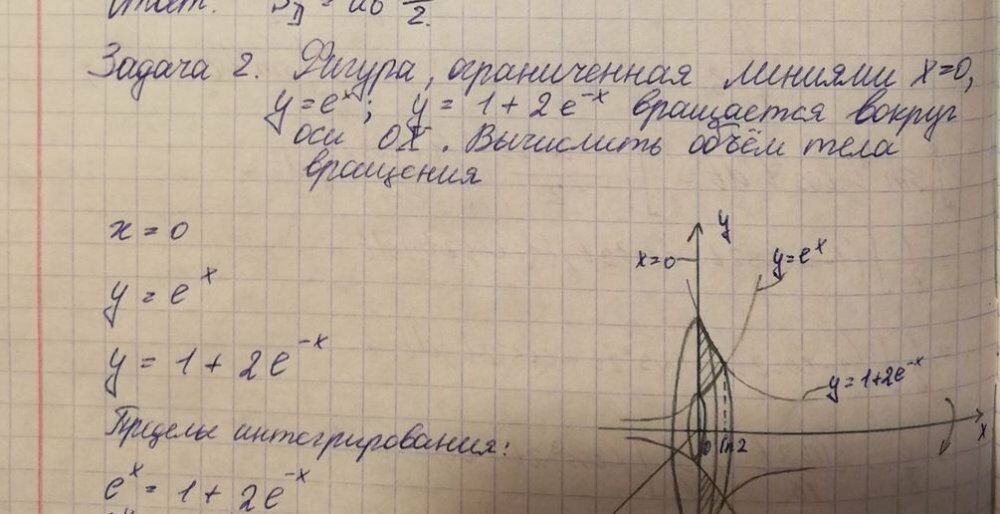 Ответ: Sп = πab/2.
Задача 2. Фигура, ограниченная линиями x=0,
y = eˣ; y = 1 + 2e⁻ˣ вращается вокруг
оси OX. Вычислить объём тела
вращения
x = 0
y = eˣ
y = 1 + 2e⁻ˣ
Пределы интегрирования:
eˣ = 1 + 2e⁻ˣ
y
x=0
y=eˣ
y=1+2e⁻ˣ
0 ln2
x